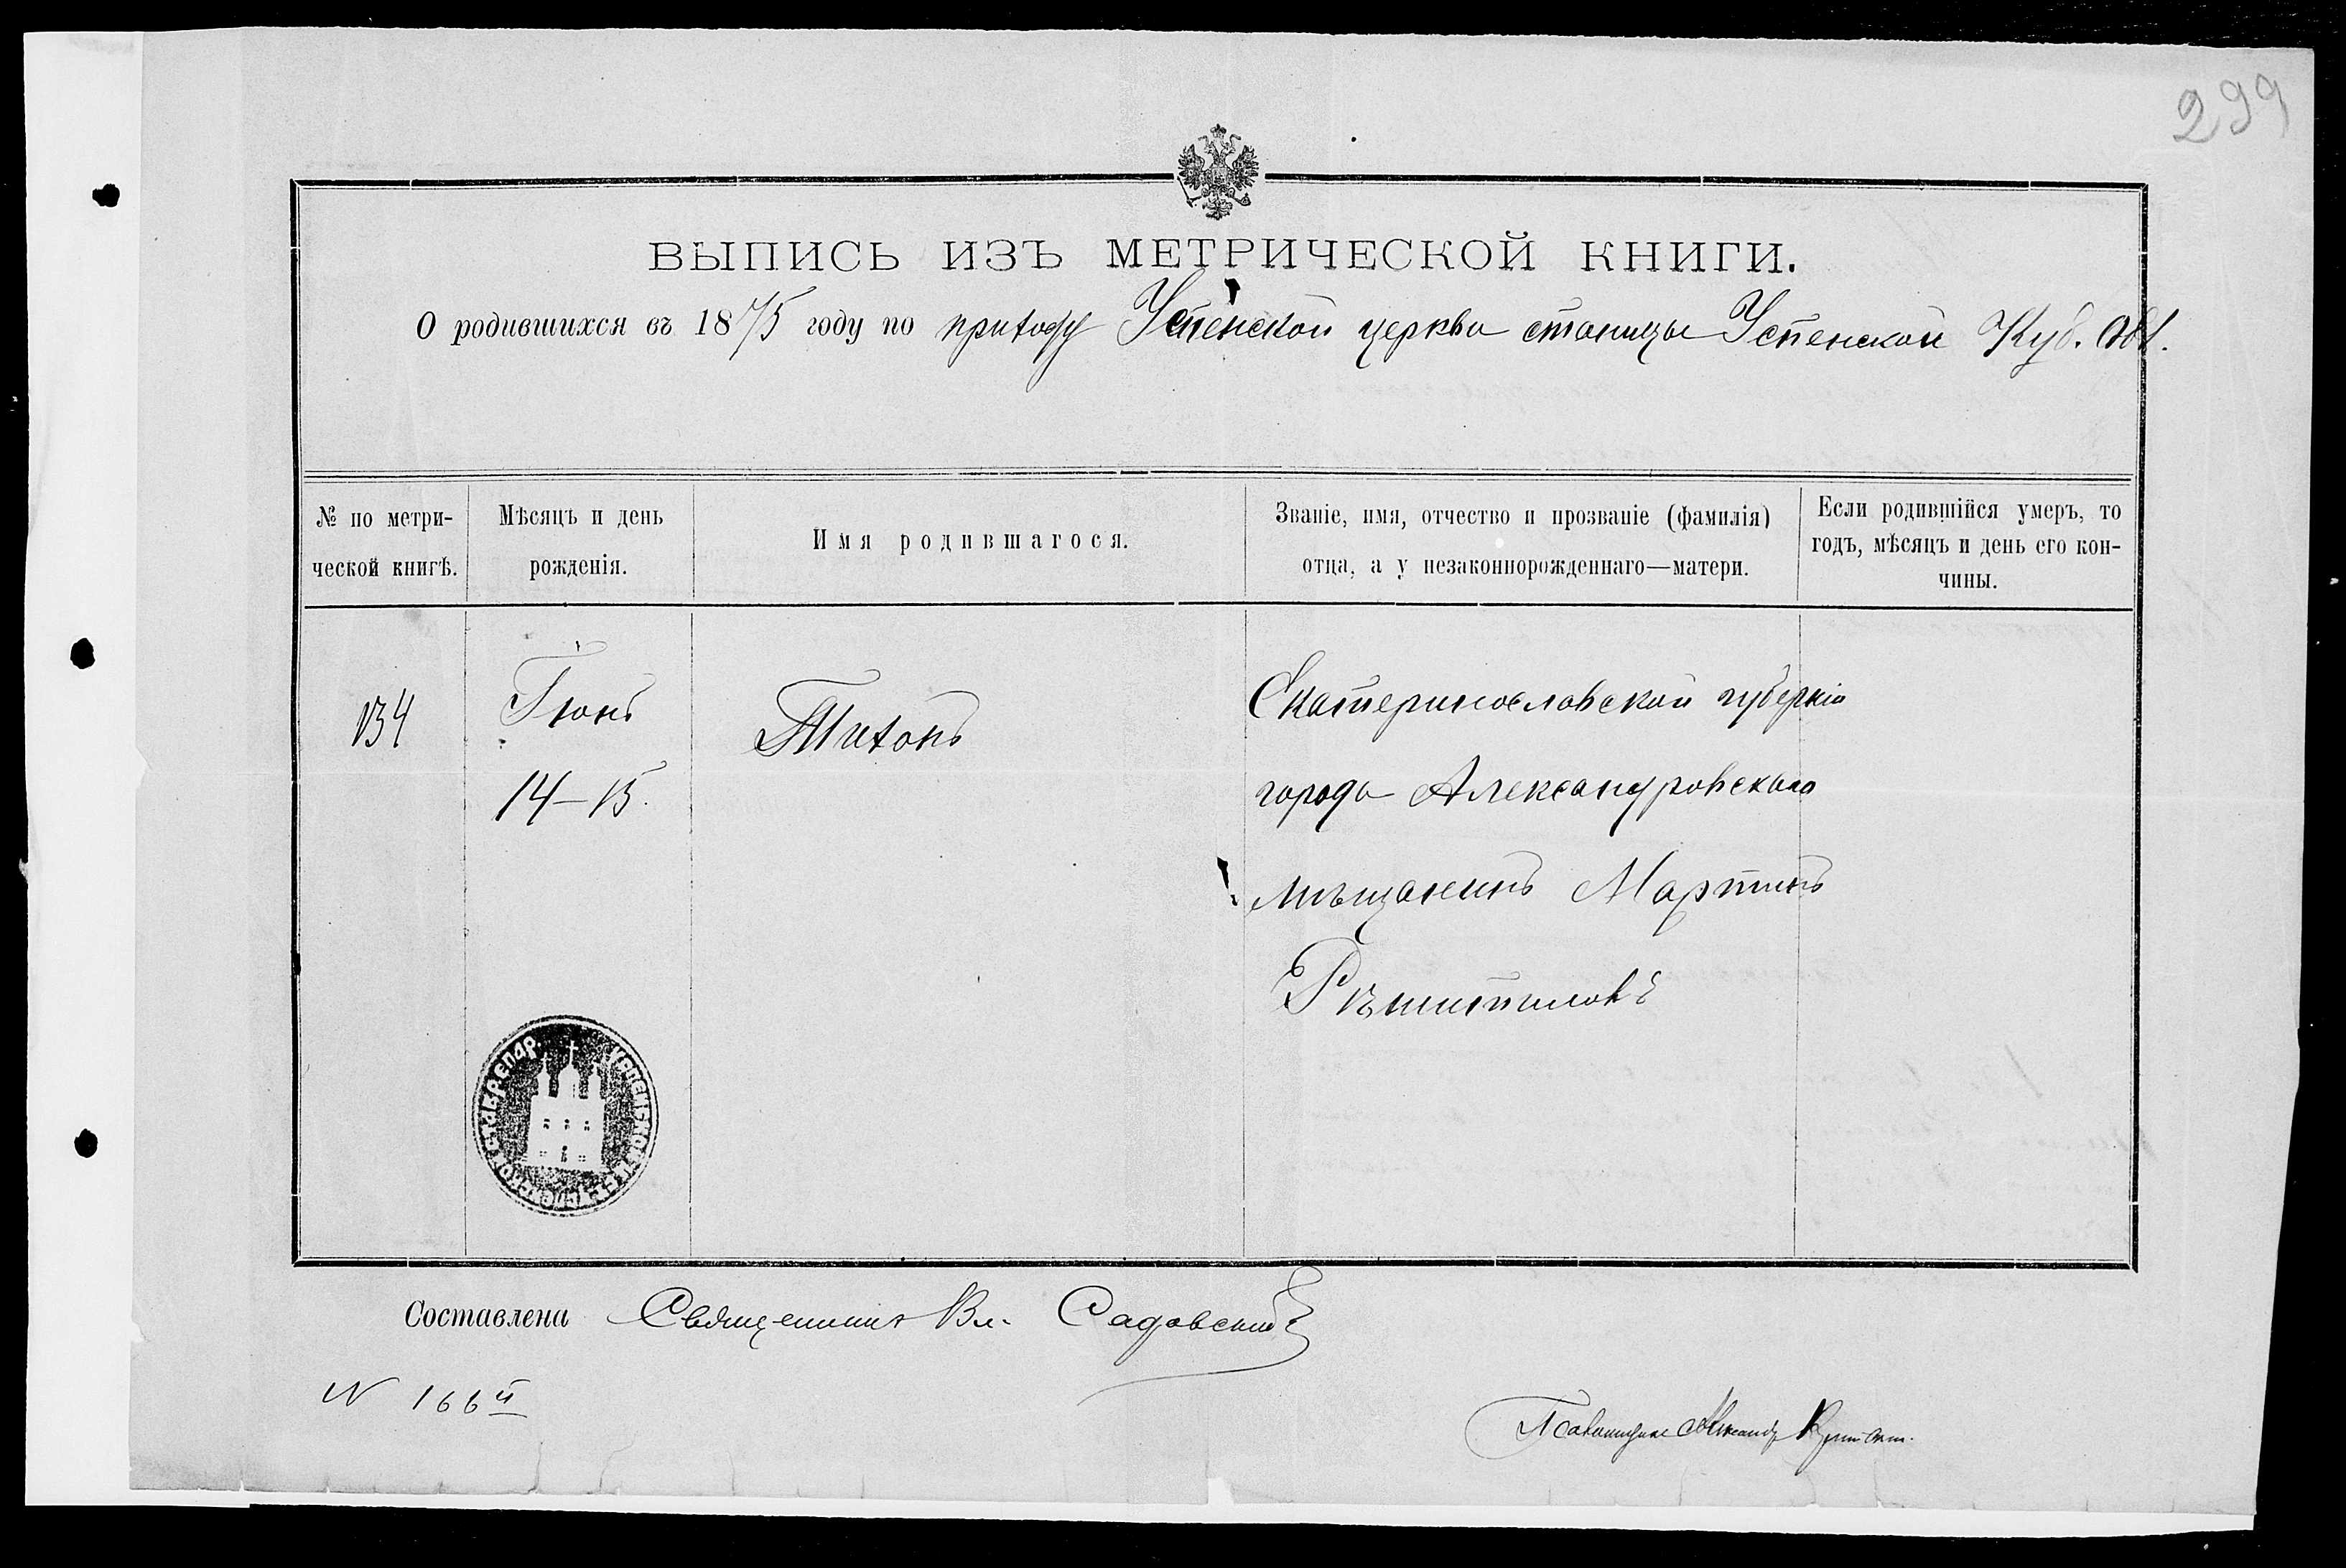 299
ВЫПИСЬ ИЗЪ МЕТРИЧЕСКОЙ КНИГИ.
О родившихся въ 1875 году по приходу Успенской церкви станицы Успенской Куб. Обл.
№ по метри-
ческой книгѣ.
Мѣсяцъ и день
рожденія.
Имя родившагося.
Званіе, имя, отчество и прозваніе (фамилія)
отца, а у незаконнорожденнаго—матери.
Если родившійся умеръ, то
годъ, мѣсяцъ и день его кон-
чины.
134
Іюнь
14–15.
Тихонъ
Екатеринославской губерніи
города Александровска
мѣщанинъ Мартинъ
Рѣшитиловъ
Составлена Священникъ Вл. Садовскій
N 166
Псаломщикъ Александр